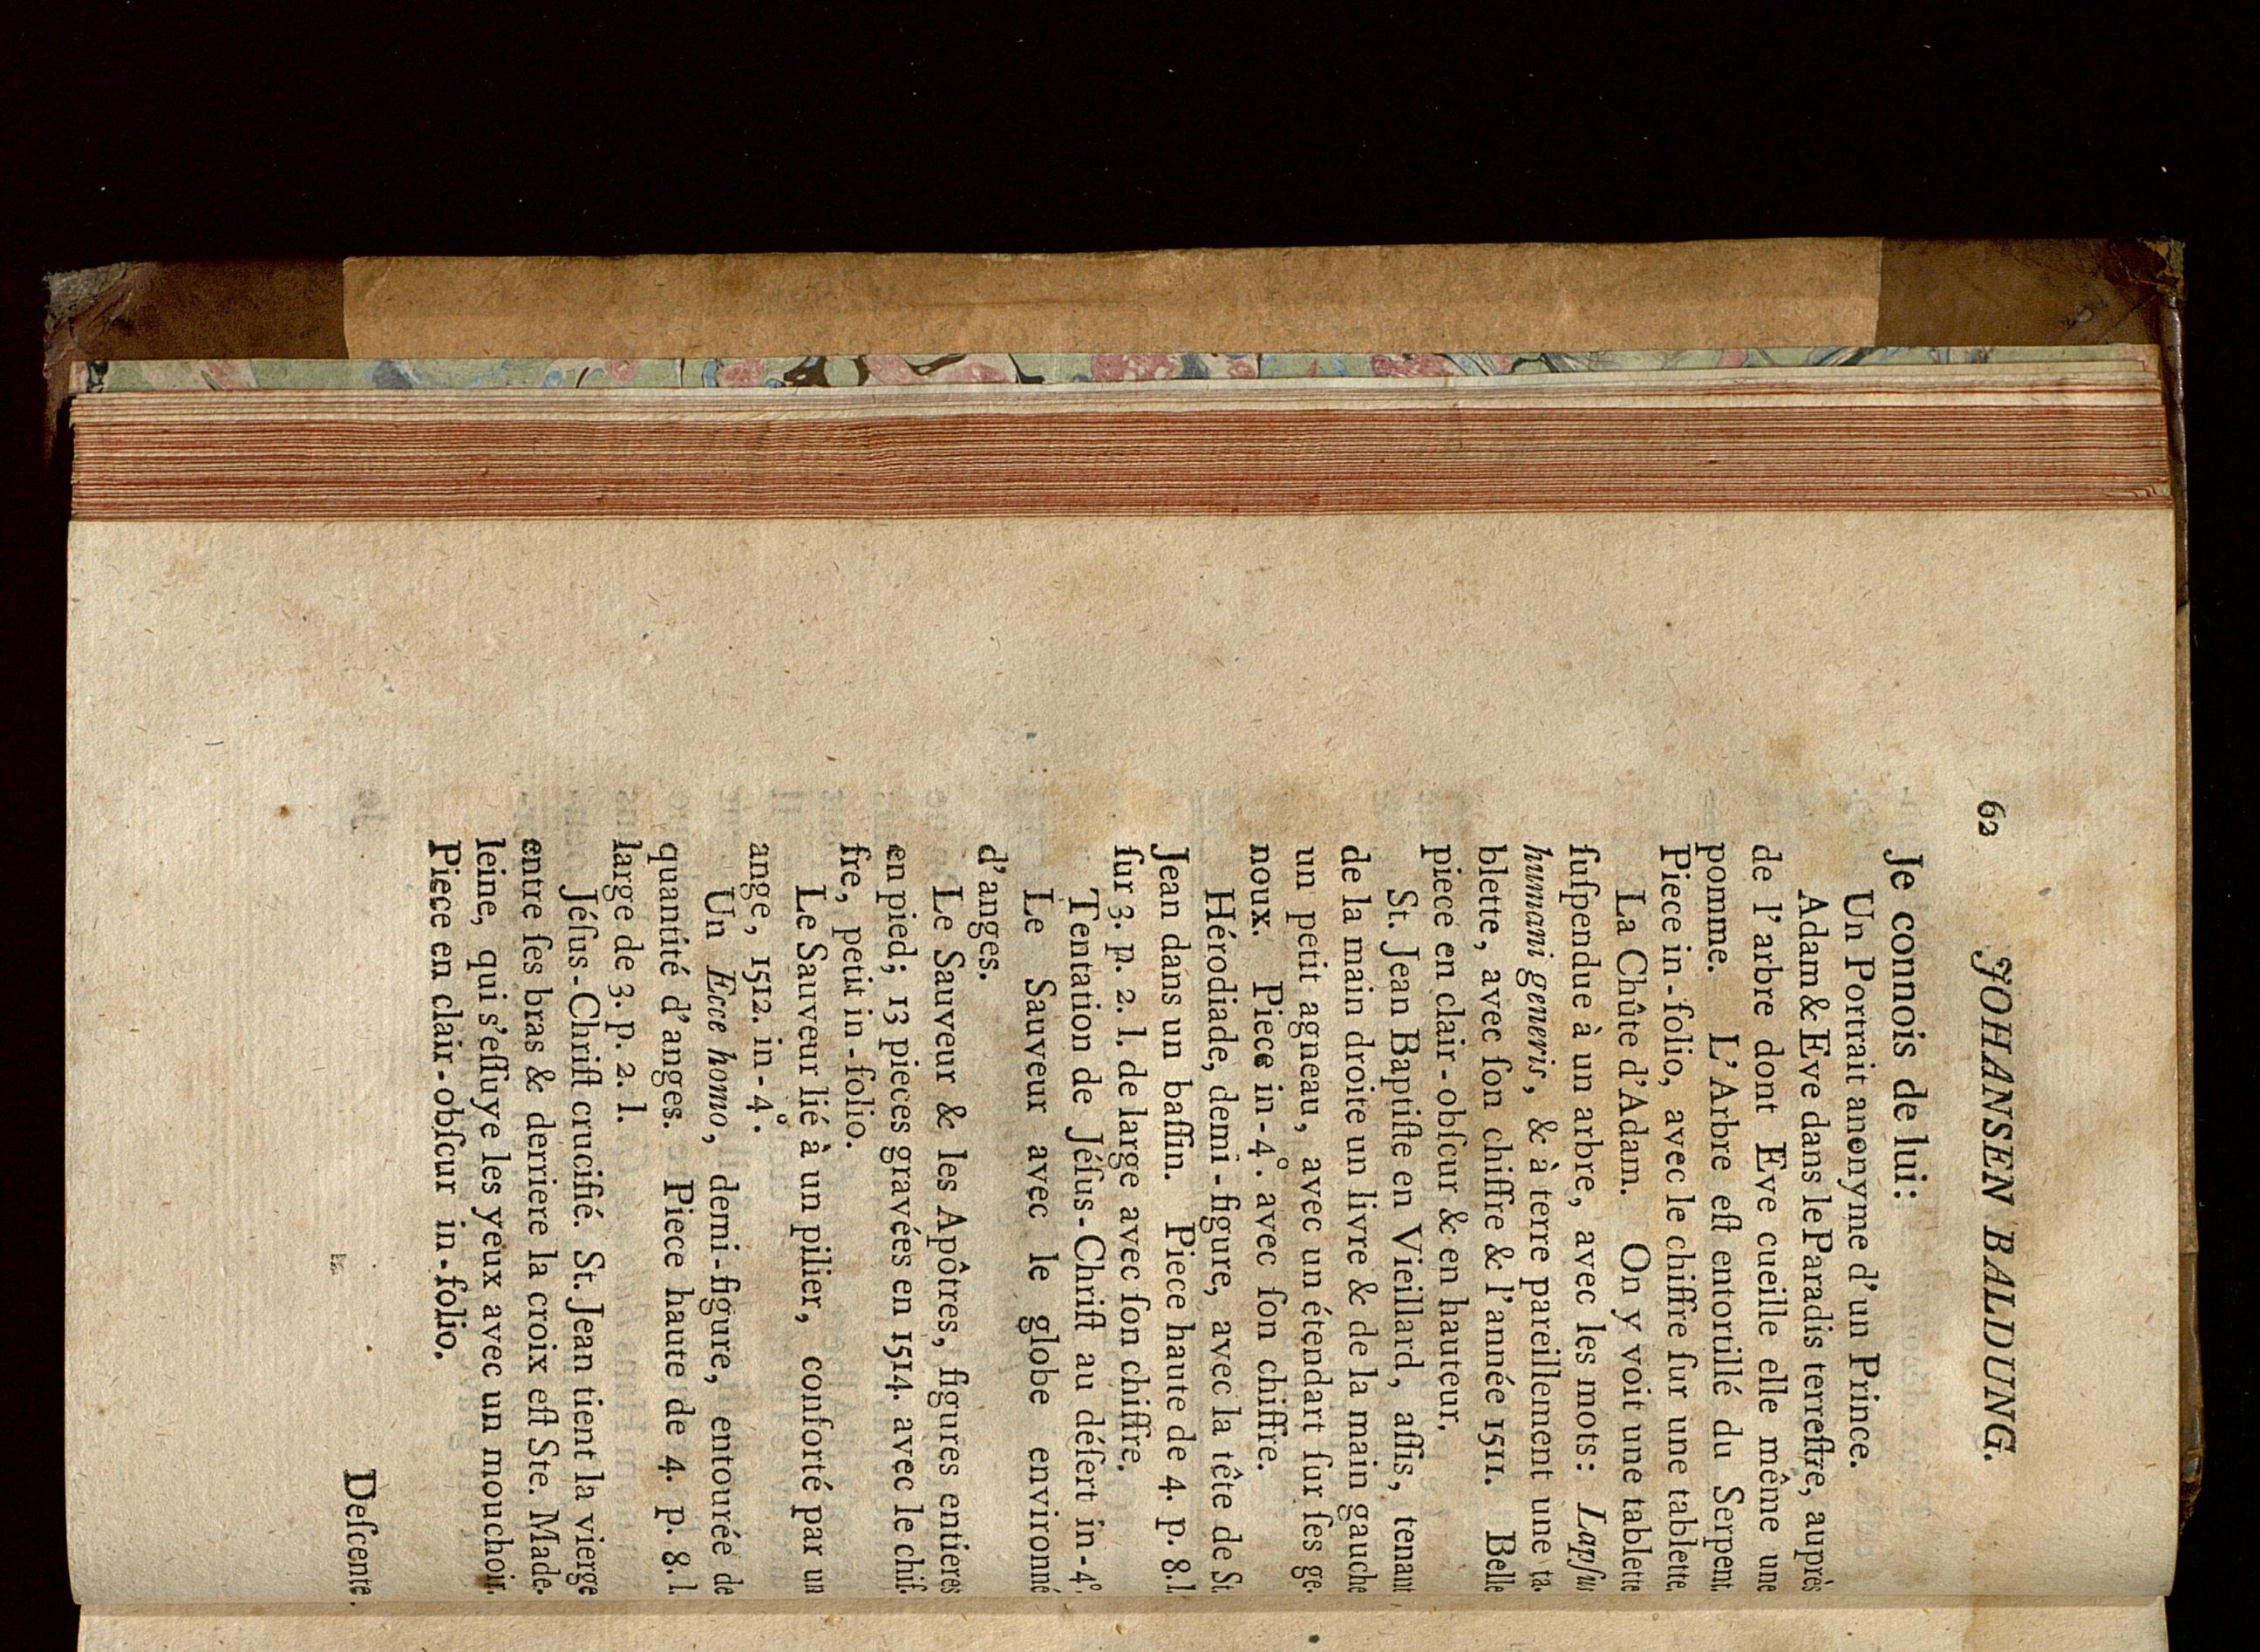 62 JOHANSEN BALDUNG.
Je connois de lui:
Un Portrait anonyme d'un Prince.
Adam & Eve dans le Paradis terreſtre, auprès
de l'arbre dont Eve cueille elle même une
pomme. L'Arbre eſt entortillé du Serpent.
Piece in-folio, avec le chiffre ſur une tablette.
La Chûte d'Adam. On y voit une tablette
ſuſpendue à un arbre, avec les mots: Lapſus
humani generis, & à terre pareillement une ta-
blette, avec ſon chiffre & l'année 1511. Belle
piece en clair-obſcur & en hauteur.
St. Jean Baptiſte en Vieillard, aſſis, tenant
de la main droite un livre & de la main gauche
un petit agneau, avec un étendart ſur ſes ge-
noux. Piece in-4°. avec ſon chiffre.
Hérodiade, demi-figure, avec la tête de St.
Jean dans un baſſin. Piece haute de 4. p. 8. l.
ſur 3. p. 2. l. de large avec ſon chiffre.
Tentation de Jéſus-Chriſt au déſert in-4°.
Le Sauveur avec le globe environné
d'anges.
Le Sauveur & les Apôtres, figures entieres
en pied; 13 pieces gravées en 1514. avec le chif-
fre, petit in-folio.
Le Sauveur lié à un pilier, conforté par un
ange, 1512. in-4°.
Un Ecce homo, demi-figure, entourée de
quantité d'anges. Piece haute de 4. p. 8. l.
large de 3. p. 2. l.
Jéſus-Chriſt crucifié. St. Jean tient la vierge
entre ſes bras & derriere la croix eſt Ste. Made-
leine, qui s'eſſuye les yeux avec un mouchoir.
Piece en clair-obſcur in-folio.
Deſcente